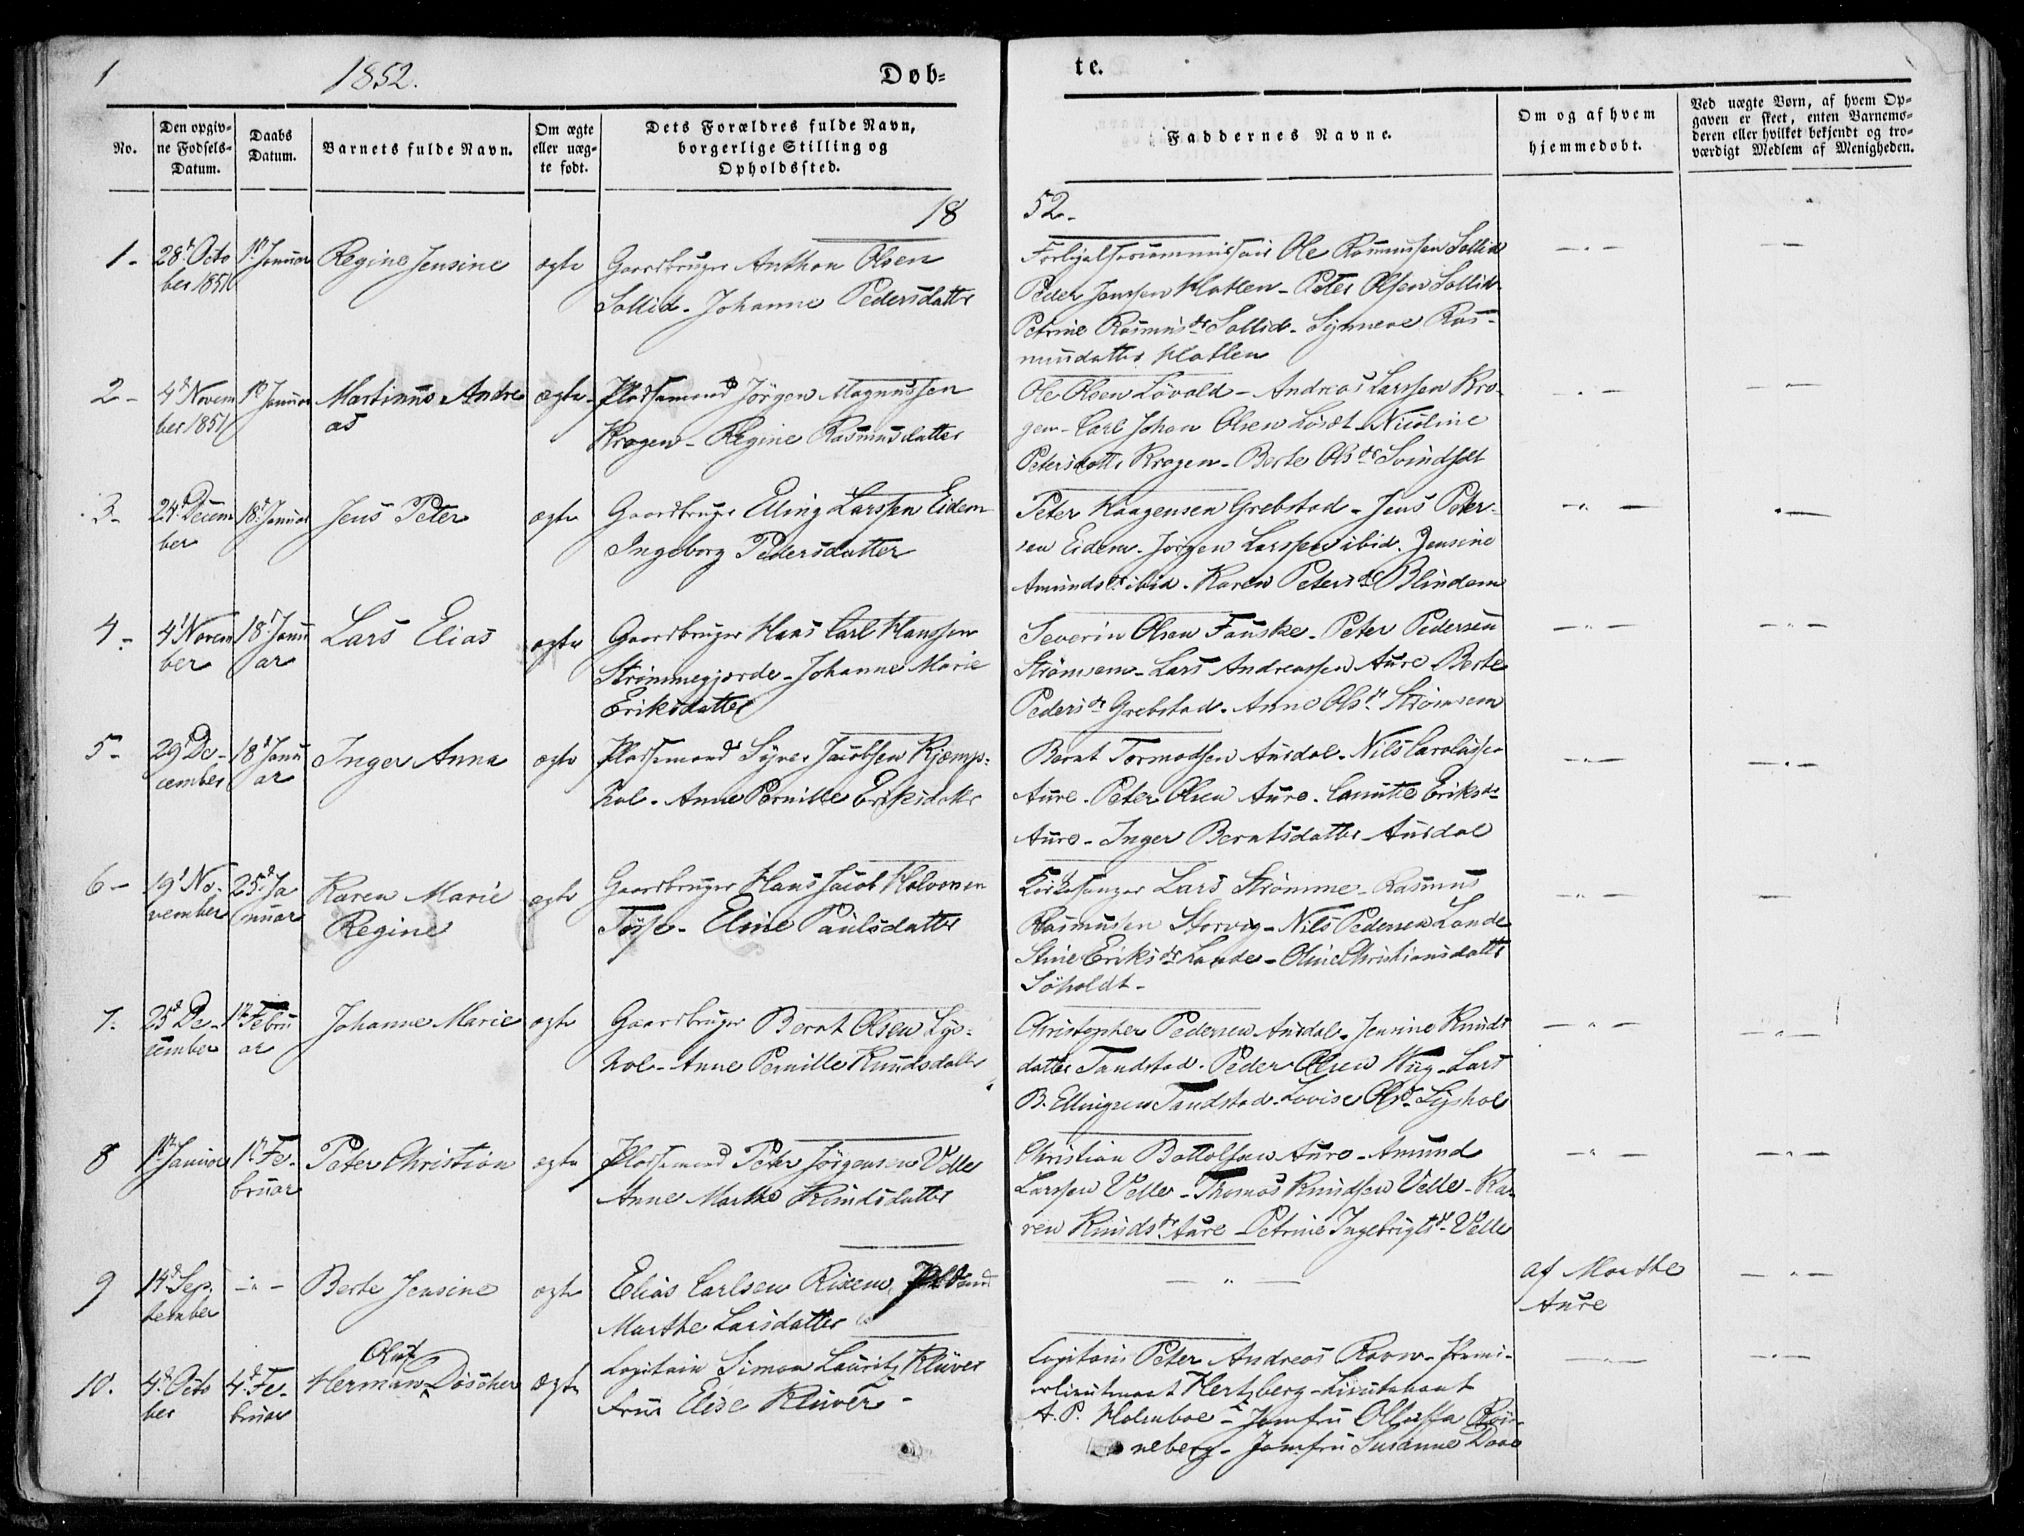 1 1852. Døb=
te.
No.
Den opgiv-
ne Fødsels-
Datum.
Daabs
Datum.
Barnets fulde Navn.
Om ægte
eller uæg-
te født.
Dets Forældres fulde Navn,
borgerlige Stilling og
Opholdssted.
Faddernes Navne.
Om og af hvem
hjemmedøbt.
Ved uægte Børn, af hvem Op-
gaven er skeet, enten Barnemo-
deren eller hvilket bekjendt og tro-
værdigt Medlem af Menigheden.
18
52-
1-
28d Octo
ber 1851
1ste Januar
Regine Jensine
ægte
Gaardbruger Anthon Olsen
Sollid- Johanne Pedersdatter
Forligelsescommissair Ole Rasmussen Sollid
Peder Jonssen Hatlen- Peter Olsen Sollid
Petrine Rasmusdr Sollid- Synneve Ras-
musdatter Hatlen
2-
4d Novem
ber 1851
1ste Januar
Martinus Andre
as
ægte-
Pladsemand Jörgen Magnussen
Kragen- Regine Rasmusdatter
Ole Olsen Lövold- Andreas Larssen Kra-
gen- Carl Johan Olsen- Nicoline
Petersdatter Kragen- Berte Olsdr
3-
24d Decem
ber
18d Januar
Jens Peter
ægte
Gaardbruger Elling Larssen Eidem
Ingeborg Pedersdatter
Peter Haagensen Grebstad- Jens Peter-
sen Eidem. Jörgen Larssen ibid. Jensine
Amundsdr ibid. Karen Petersdr Blindem
4-
4d Novem
ber
18d Janu
ar
Lars Elias
ægte
Gaardbruger Hans Carl Hanssen
Strömmegjerde- Johanne Marie
Eriksdatter
Severin Olsen Fauske- Peter Pedersen
Strömsem- Lars Andreassen Aure- Berte
Pedersdr Grebstad. Anne Olsdr Strömsem
5-
29d De-
cember
18d Janu
ar
Inger Anna
ægte
Pladsemand Syver Jacobsen Kjæmp-
hol- Anne Pernille Eriksdatter
Bernt Tormodsen Aursdal- Nils
Aure- Peter Olsen Aure- Eriksdr
Aure- Inger Berntsdatter Aursdal
6-
19d No-
vember
25d Ja
nuar
Karen Marie
Regine
ægte
Gaardbruger Hans Jacob Halvorsen
Tösse- Eline Paulsdatter
Kirkesanger Lars Strömme- Rasmus
Rasmussen Storvig- Nils Pedersen Lande
Stine Eriksdr Lande- Oline Christiansdatter
Söholdt-
7-
25d De-
cember
1ste Febru
ar
Johanne Marie
ægte
Gaardbruger Bernt Olsen Lys-
hol- Anne Pernille Knudsdatter
Christopher Pedersen Aursdal- Jenine Knuds
datter Tandstad- Peder Olsen Wug- Lars
B. Ellingsen Tandstad- Lovise Olsdr Lyshol
8
1ste Januar
1ste Fe-
bruar
Peter Christian
ægte
Pladsemand Peter Jörgensen Velle
Anne Marthe Knudsdatter
Christian Bottolfsen Aure- Amund
Larssen Velle- Thomas Knudsen Velle- Ka-
ren Knudsdr Aure- Petrine Ingebrigtsdr Velle
9
14d Sep
tember
-"-
Berte Jensine
ægte
Elias Carlsen Rixem,
Marthe Larsdatter
-"-
af Marthe
Aure
10.
4d Octo
ber
4d Fe-
bruar
Oluf
Herman Döscher
ægte
Capitain Simon Lauritz Klüver
Frue Elise Klüver-
Capitain Peter Andreas Ravn- Premi-
erlieutenant Hertzberg- Lieutenant
A. P. Holmboe- Jomfru Röu-
neberg- Jomfru Susanne Daae